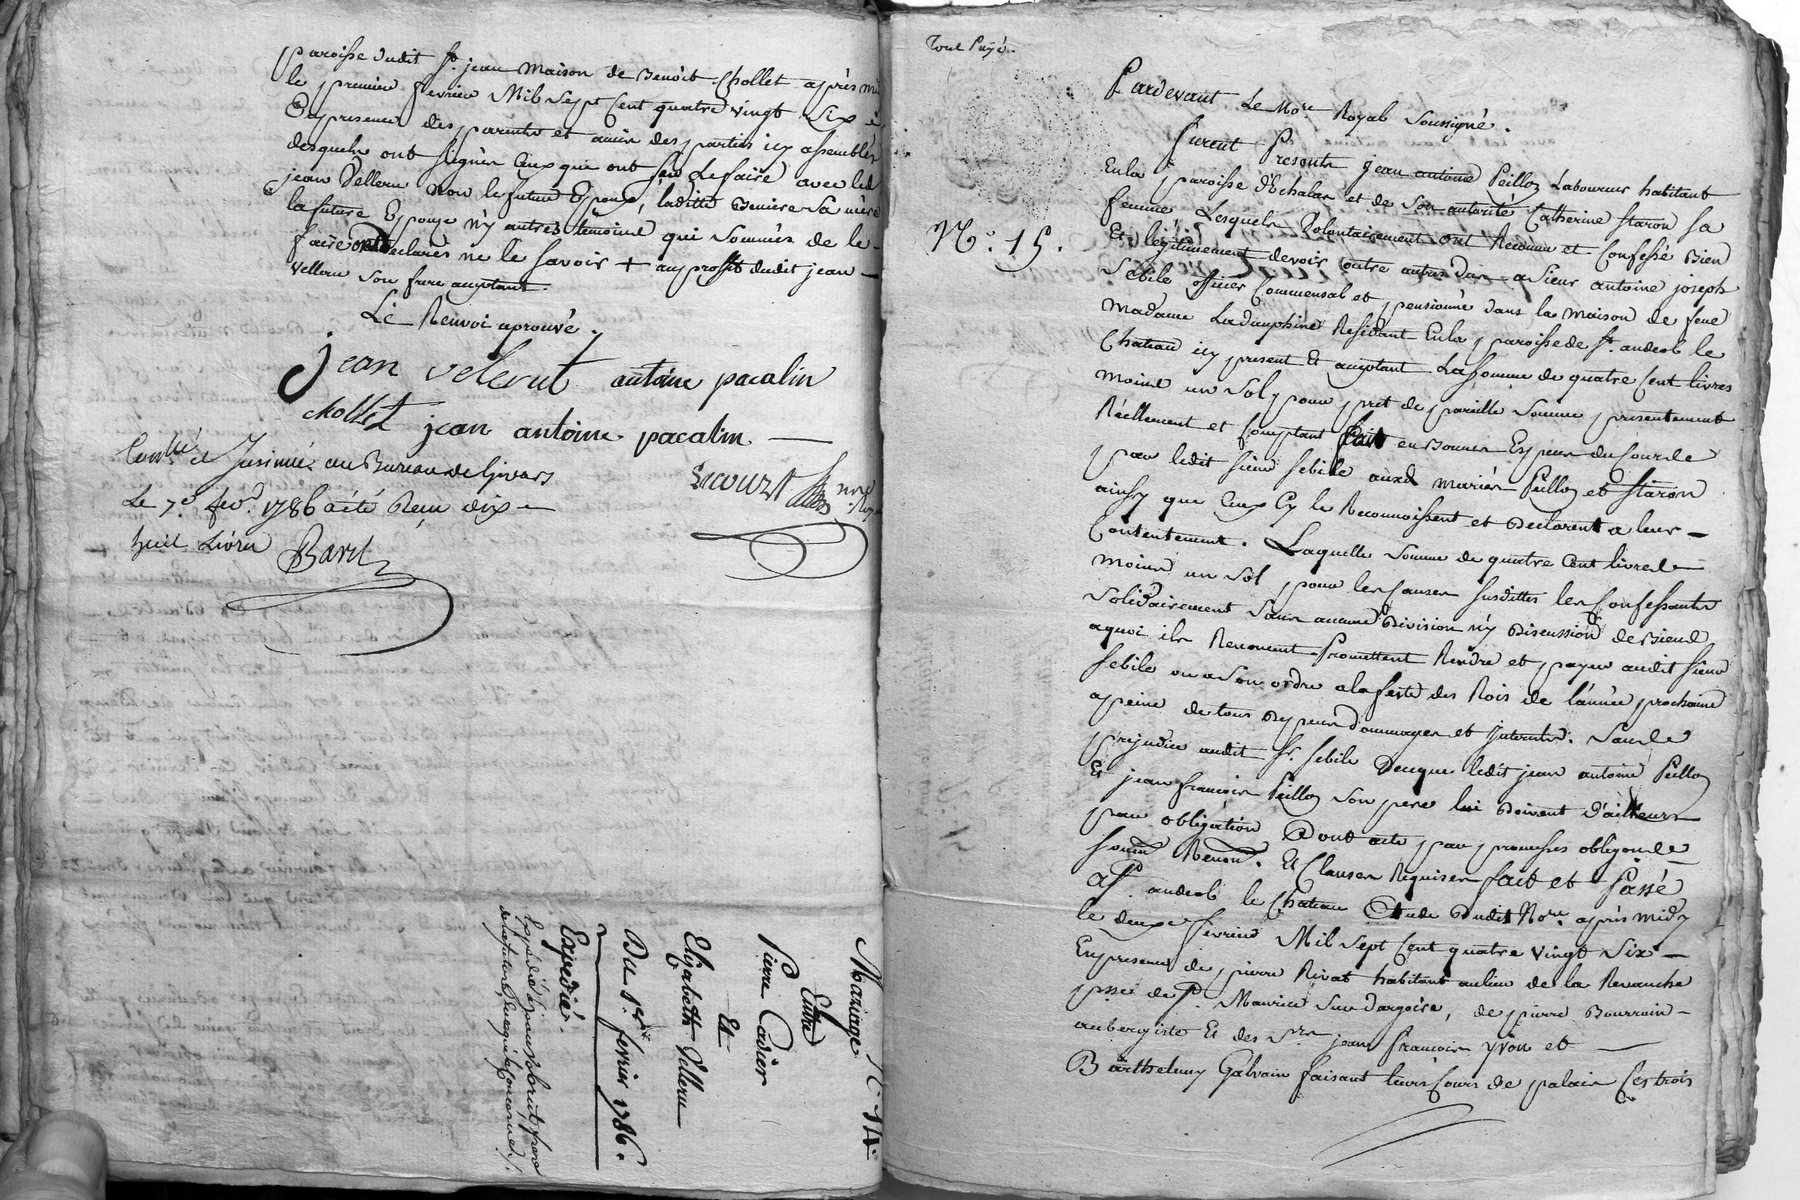 paroisse dudit st. jean maison de Benoit Chollet après mi
le premier fevrier Mil Sept Cent quatre vingt Six
En presence des parents et amis des parties icy assemblés
desquels ont signés Ceux qui ont sçu Le faire avec led
jean Velleru non le futur Epoux, laditte Beniere Sa mère
la future Epouze n'y autres témoins qui Sommés de le
faire ont déclarés ne le savoir + au profit dudit jean
velleru son frere acceptant
Le Renvoi aprouvé
jean velerut antoine pacalin
chollet jean antoine pacalin
Con.lé et Insinué au Bureau de Givors
Le 7.e fev.r 1786 a été Reçu dix
huit Livres
Mariage
Entre
Pierre Cadier
Et
Elizabeth Velleru
Du 1er fevrier 1786.
Expedié.
Tout Payé.
N.º 15.
Pardevant Le No.re Royal Soussigné.
Furent Presents jean antoine Peillon Laboureur habitant
En la paroisse d'Echalas et de Son autorité Catherine Staron sa
femme, Lesquels Volontairement ont Reconnu et Confessé Bien
Et legitimement devoir outre autres dus a Sieur antoine joseph
Sebile officier Commensal et pensionné dans la Maison de feue
Madame La dauphine Résidant En la paroisse de St. andeol le
Chateau icy present Et acceptant La somme de quatre Cent livres
moins un Sol pour pret de pareille Somme presentement
Réellement et Comptant fait en Bonnes Especes du Cours de
par ledit sieur Sebile auxd mariés Peillon et Staron
ainsy que Ceux Cy le Reconnoissent et Declarent a leur
Contentement. Laquelle Somme de quatre Cent livres
moins un Sol pour les Causes susdittes les Confessants
Solidairement Sans aucune Division n'y Discussion de Biens
a quoi ils Renoncent Promettent Rendre et payer audit sieur
Sebile ou a Son ordre a la feste des Rois de l'année prochaine
a peine de tous Depens Dommages et Interets. Sans
prejudice audit Sr. Sebile De ce que ledit jean antoine Peillon
Et jean françois Peillon Son pere lui Doivent D'ailleurs
par obligation Dont acte par promesses obligeons
soum Renon. Et Clauses Requises fait et Passé
a St. andeol le Chateau Etude Dudit No.re après midy
le deux fevrier Mil Sept Cent quatre vingt Six
En presence de pierre Rivat habitant au lieu de la Revanche
psse de St. Maurice Sur dargoire, de pierre Bourrain
aubergiste Et des Srs jean françois Yvon et
Barthelemy Galvain faisant leurs Cours de palais Ces trois